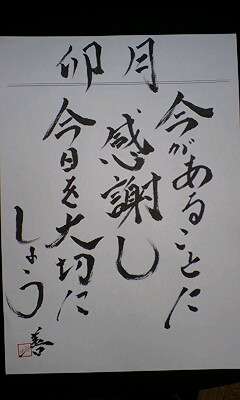 卯月
今があることに
感謝し
今日を大切に
しょう
善